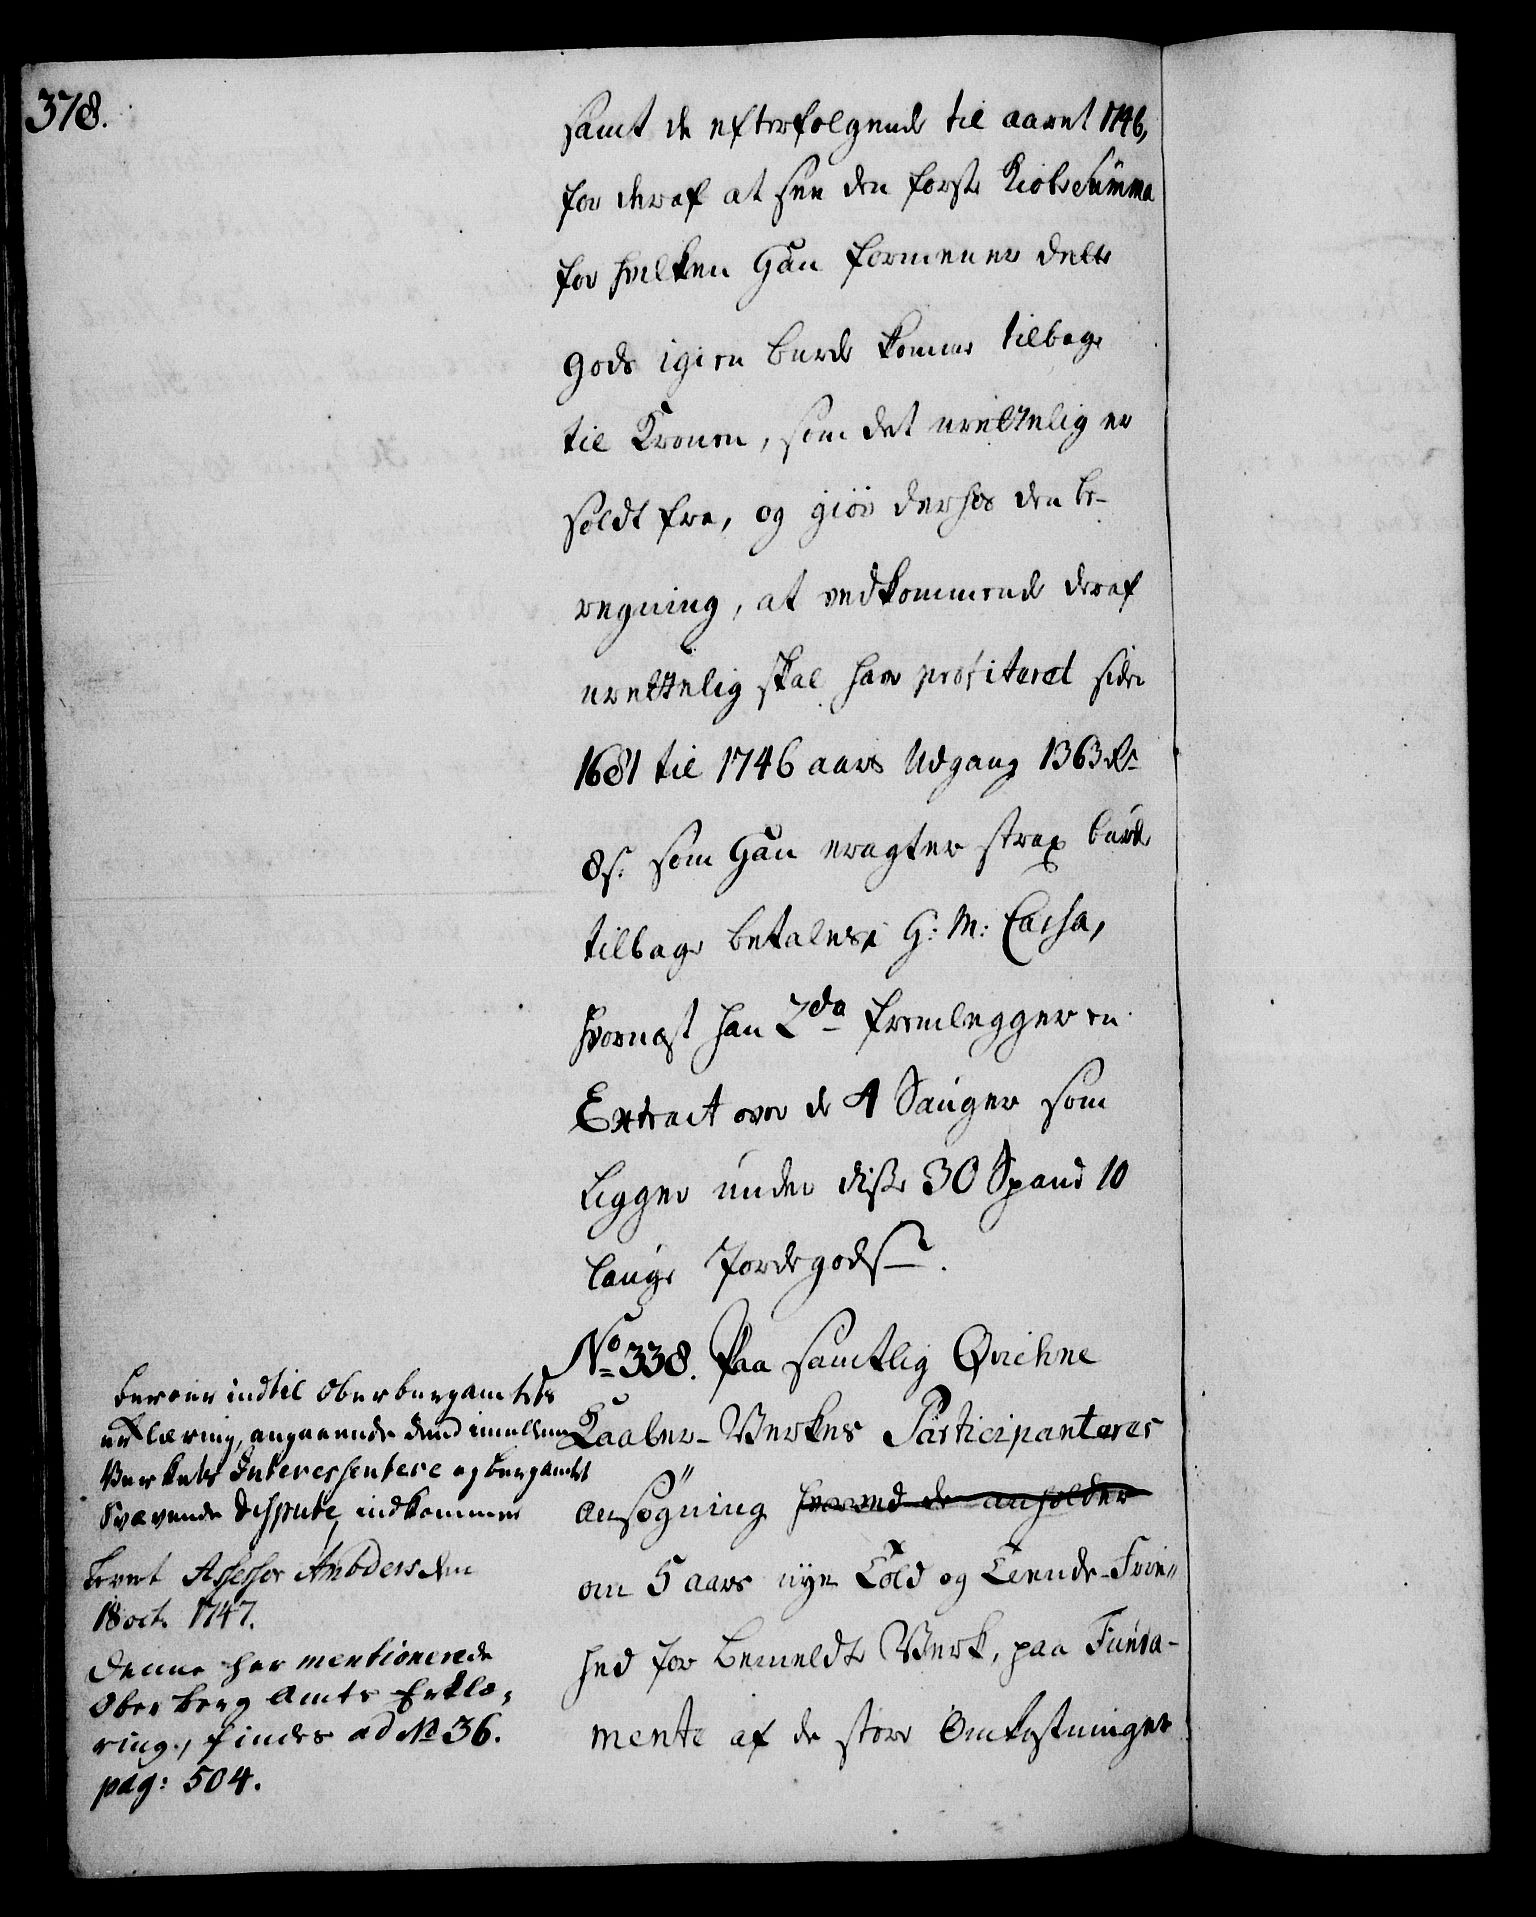 378.
samt de efterfølgende til aaret 1746,
for deraf at see den første Kiøbe Summa
for hvilken Han formener dette
Gods igien burde komme tilbage
til Kronen, som det urettelig er
soldt fra, og giør derhos den be-
regning, at vedkommende deraf
urettelig skal have profiteret siden
1681 til 1746 aars Udgang 1363 Rd
8 s. som Han eragter strax burde
tilbage betales i G: M: Cassa,
hvornæst han 2do fremlegger en
Extract over de 4 Sauger som
ligger under disse 30 Spand 10
lauge Jordegods
No 338. Paa samtlig Qvichne
Kaaber-Verkes Participanteres
ansøgning hvorved de anholder
om 5 aars nye Told og Tiende-Frie
hed for bemeldte Verk, paa Funda-
mente af de store Omkostninger
beroer indtil Oberbergamtets
erklæring, angaaende dend imellem
Verkets Interessentere og bergamtet
svævende Dispute, indkommer
levert Assessor den
18 oct. 1747.
Denne her mentionerede
Ober Berg Amts Erklæ-
ring, findes ad No 36.
pag: 504.